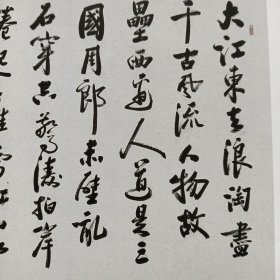 大江東去浪淘盡
千古風流人物故
壘西邊人道是三
國周郎赤壁亂
石穿空驚濤拍岸